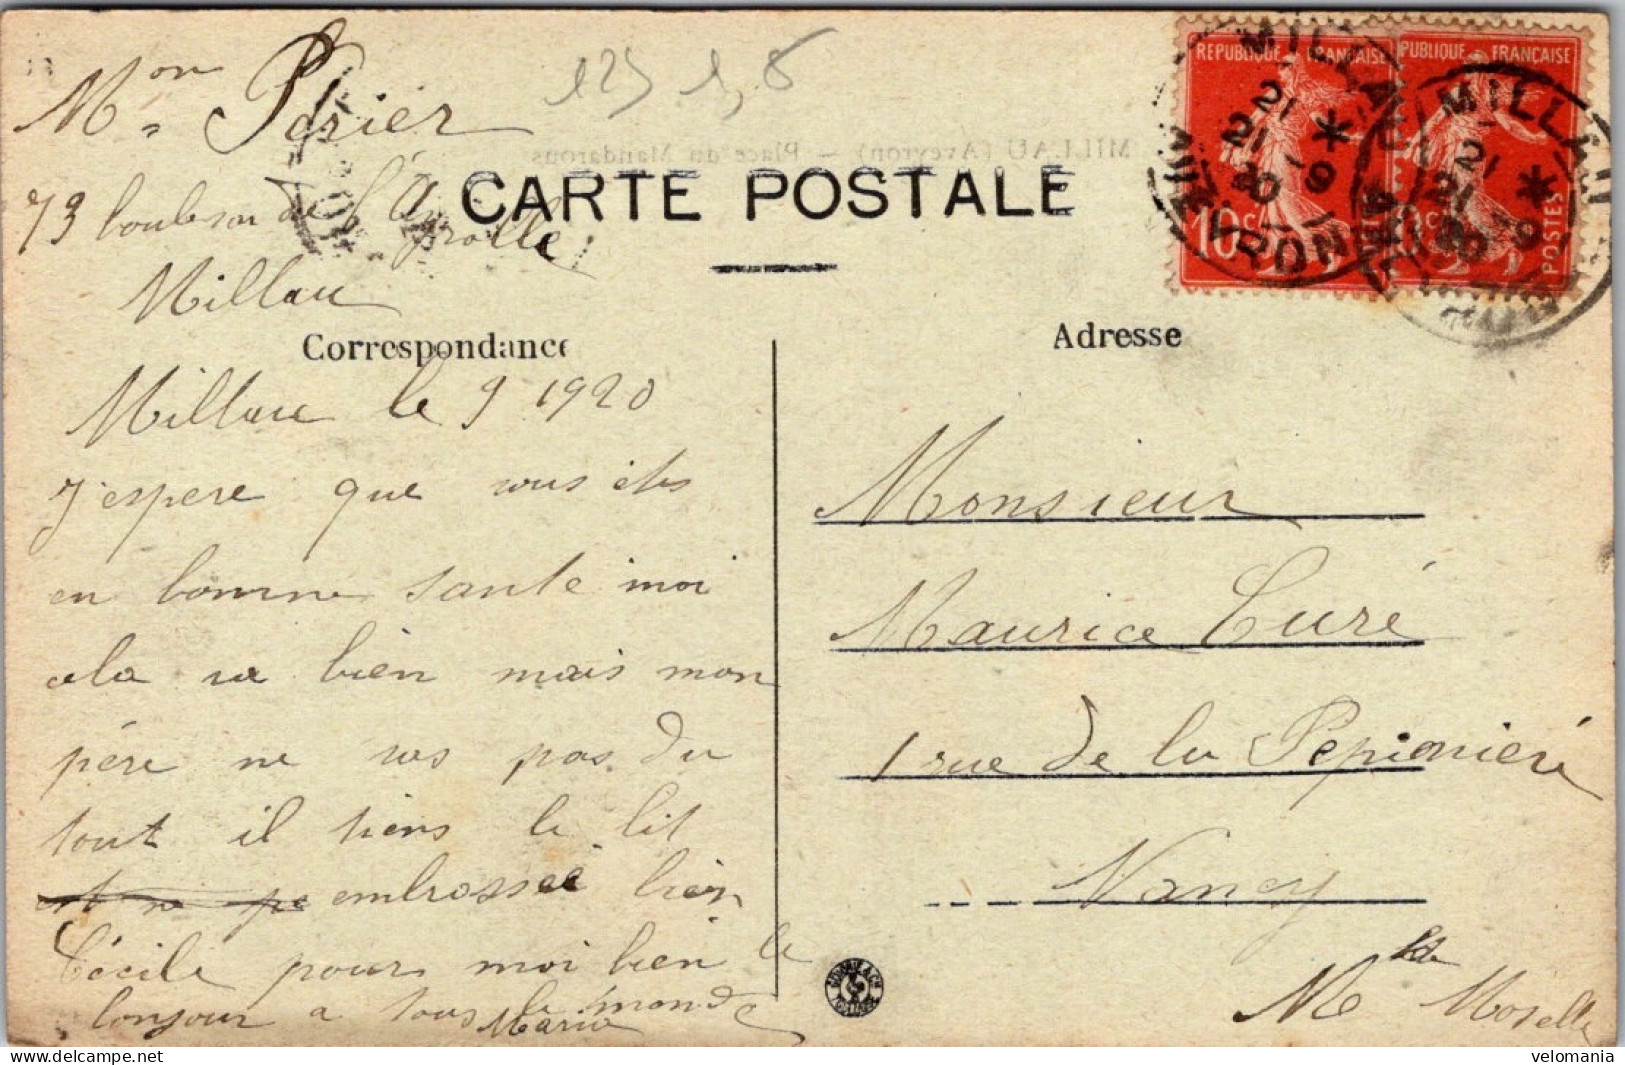 Mon Périer
123 1,8
73 boulevon de l'Ayrolle
Millau
MILLAU (Aveyron) — Place du Mandarous
CARTE POSTALE
REPUBLIQUE FRANÇAISE
10c
POSTES
MILLAU
21
21 * 9
20
AVEYRON
REPUBLIQUE FRANÇAISE
10c
POSTES
MILLAU
21
21 * 9
20
AVEYRON
Correspondance
Millau le 9 1920
J'espere que vous etes
en bonne sante moi
cela va bien mais mon
père ne vas pas du
tout il tiens le lit
et ne pe embrassée bien
Cécile pour moi bien le
bonjour a tous le monde
Maria
Adresse
Monsieur
Maurice Curé
1 rue de la Pepinieré
Nancy
Mthe Moselle
velomania